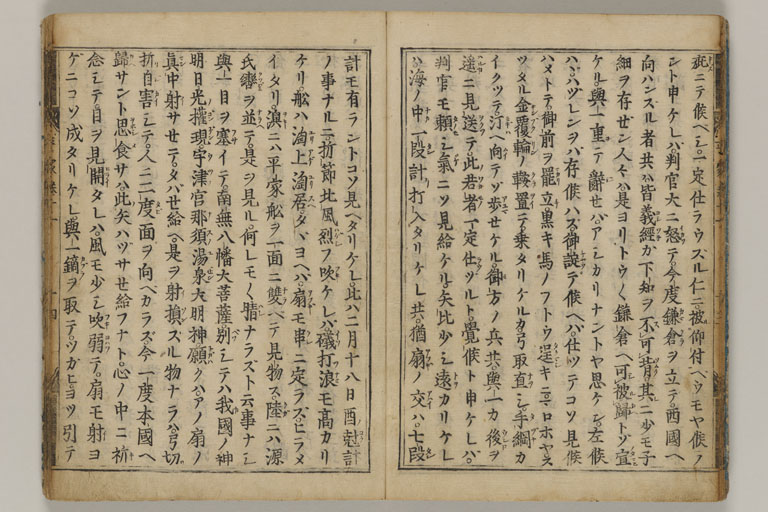 疵ニテ候ベシ一定仕ラウズル仁ニ被仰付ベウモヤ候ノ
ント申ケレバ判官大ニ怒テ今度鎌倉ヲ立テ西國ヘ
向ハンズル者共ハ皆義經カ下知ヲ不可背其ニ少モ子
細ヲ存ゼン人々ハ是ヨリトウ〱鎌倉ヘ可被歸トゾ宣
ケル與一重テ辭セバアシカリナントヤ思ケン左候
ハヾハヅレンヲバ存候ハズ御諚デ候ヘバ仕テコソ見候
ハメトテ御前ヲ罷立黒キ馬ノフトウ逞キニ ロホヤス
ツタル金覆輪ノ鞍置テ乗タリケルカ弓取直シ手綱カ
イクツテ汀ヘ向テゾ歩セケル御方ノ兵共與一カ後ヲ
遥ニ見送テ此若者一定仕ツルト覺候ト申ケレバ
判官モ頼シ氣ニソ見給ケル矢比少シ遠カリケレ
ハ海ノ中一段計打入タリケレ共猶扇ノ交ハ七段
計モ有ラントコソ見ヘタリケレ此ハ二月十八日酉尅計
ノ事ナルニ折節北風烈フ吹ケレバ礒打浪モ高カリ
ケリ舩ハ淘上淘居タヾヨヘバ扇モ串ニ定ラズヒラメ
イタリ澳ニハ平家舩ヲ一面ニ雙ベテ見物ス陸ニハ源
氏轡ヲ並テ是ヲ見ル何レモ〱情ナラズト云事ナシ
與一目ヲ塞イテ南無八幡大菩薩別シテハ我國ノ神
明日光權現宇津宮那須湯泉大明神願クハアノ扇ノ
眞中射サセテタバセ給ヘ是ヲ射損ズル物ナラハ弓切
折自害シテ人ニ二度面ヲ向ベカラズ今一度本國ヘ
歸サント思食サハ此矢ハヅサセ給フナト心ノ中ニ祈
念シテ目ヲ見開タレハ風モ少シ吹弱テ扇モ射ヨ
ゲニコソ成タリケレ與一鏑ヲ取テツガヒヨツ引テ